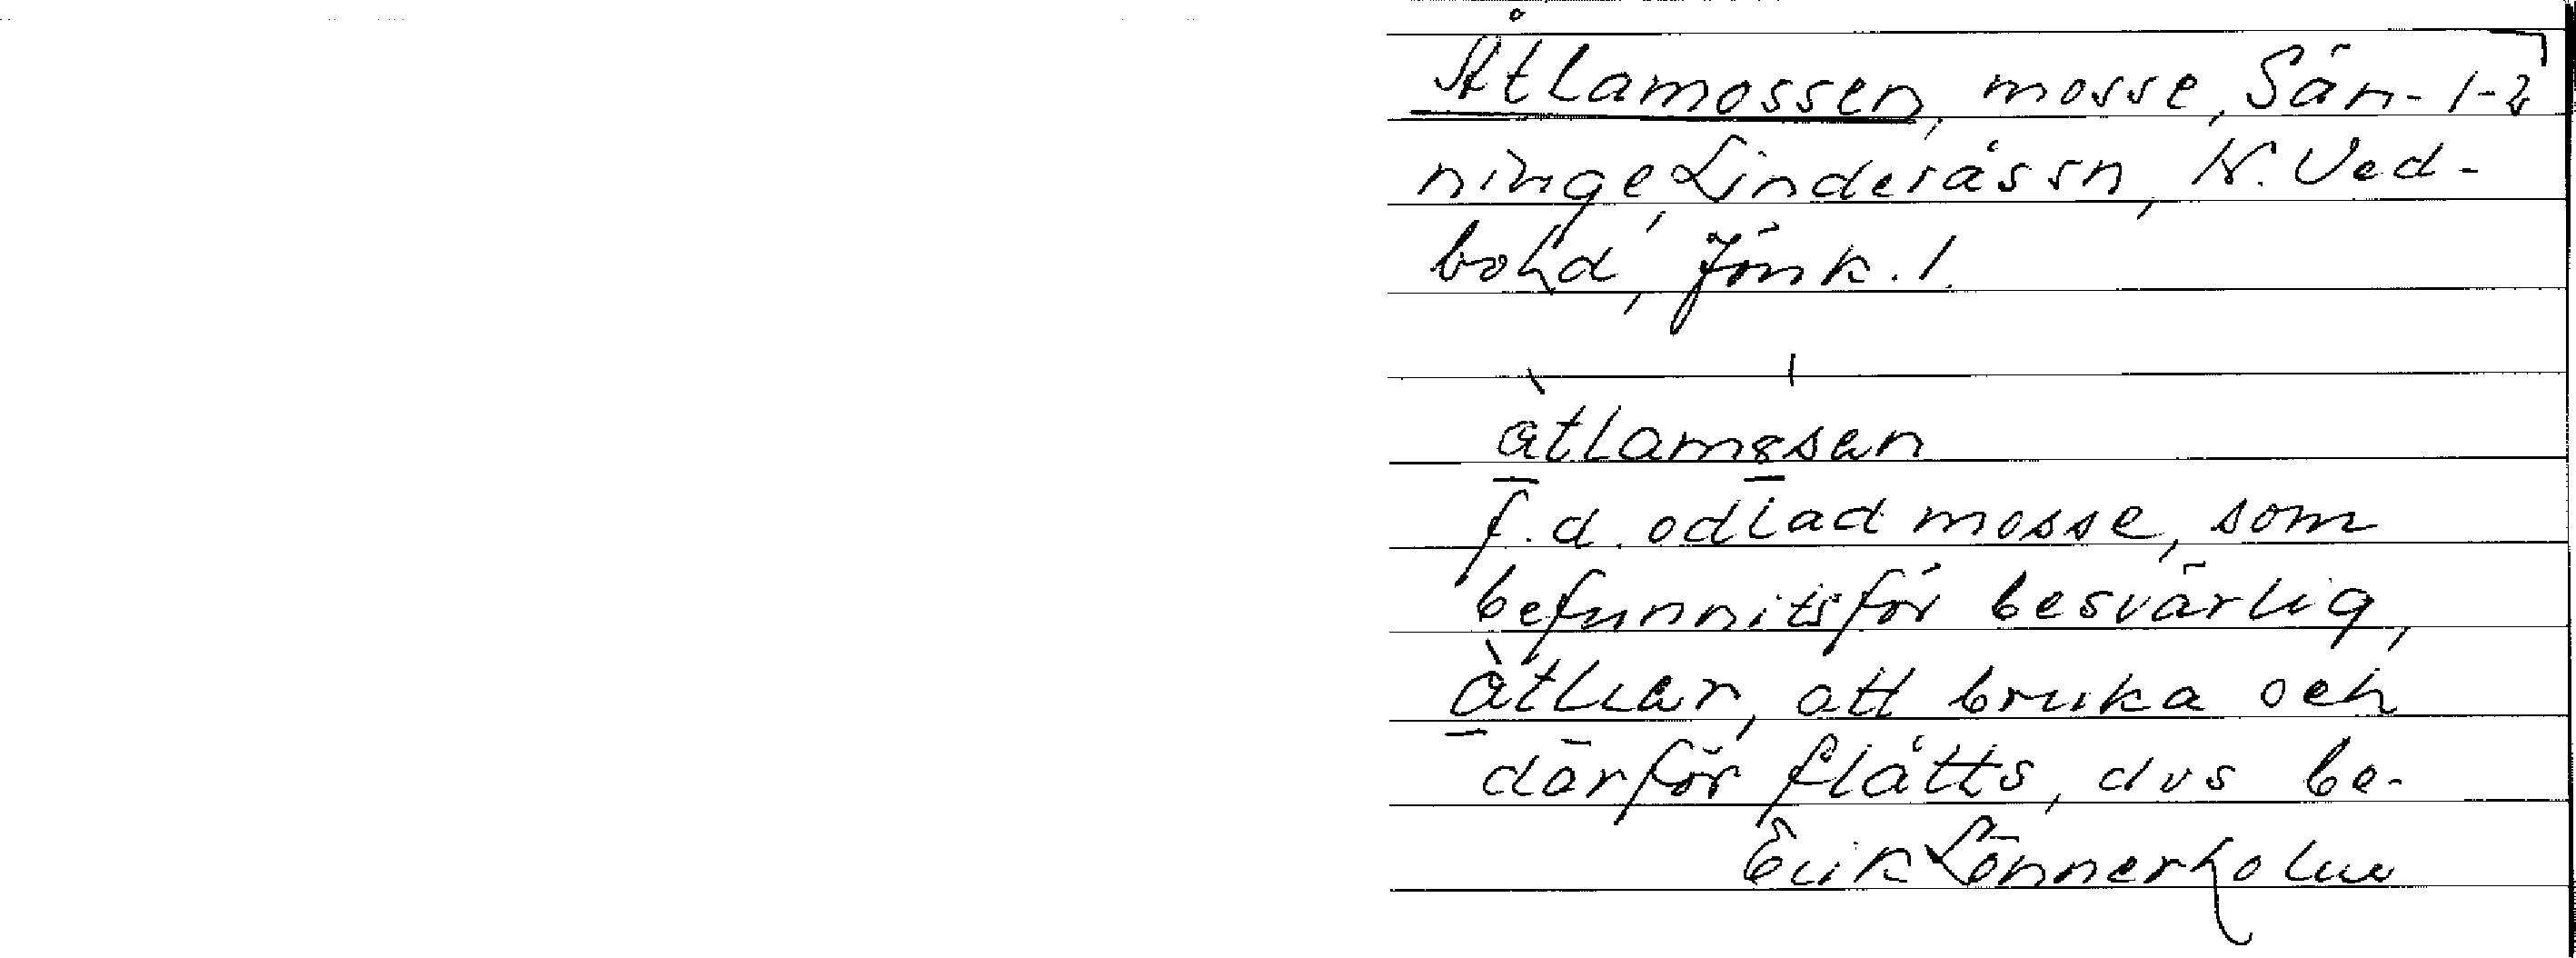 Åtlamossen, mosse, Sän- 1-2
ninge, Linderås sn, N. Ved-
bo hd, Jönk. l.
àtlamɷsen
f.d. odlad mosse, som
befunnits för besvärlig,
àtler, att bruka och
därför flåtts, dvs be-
Erik Lönnerholm